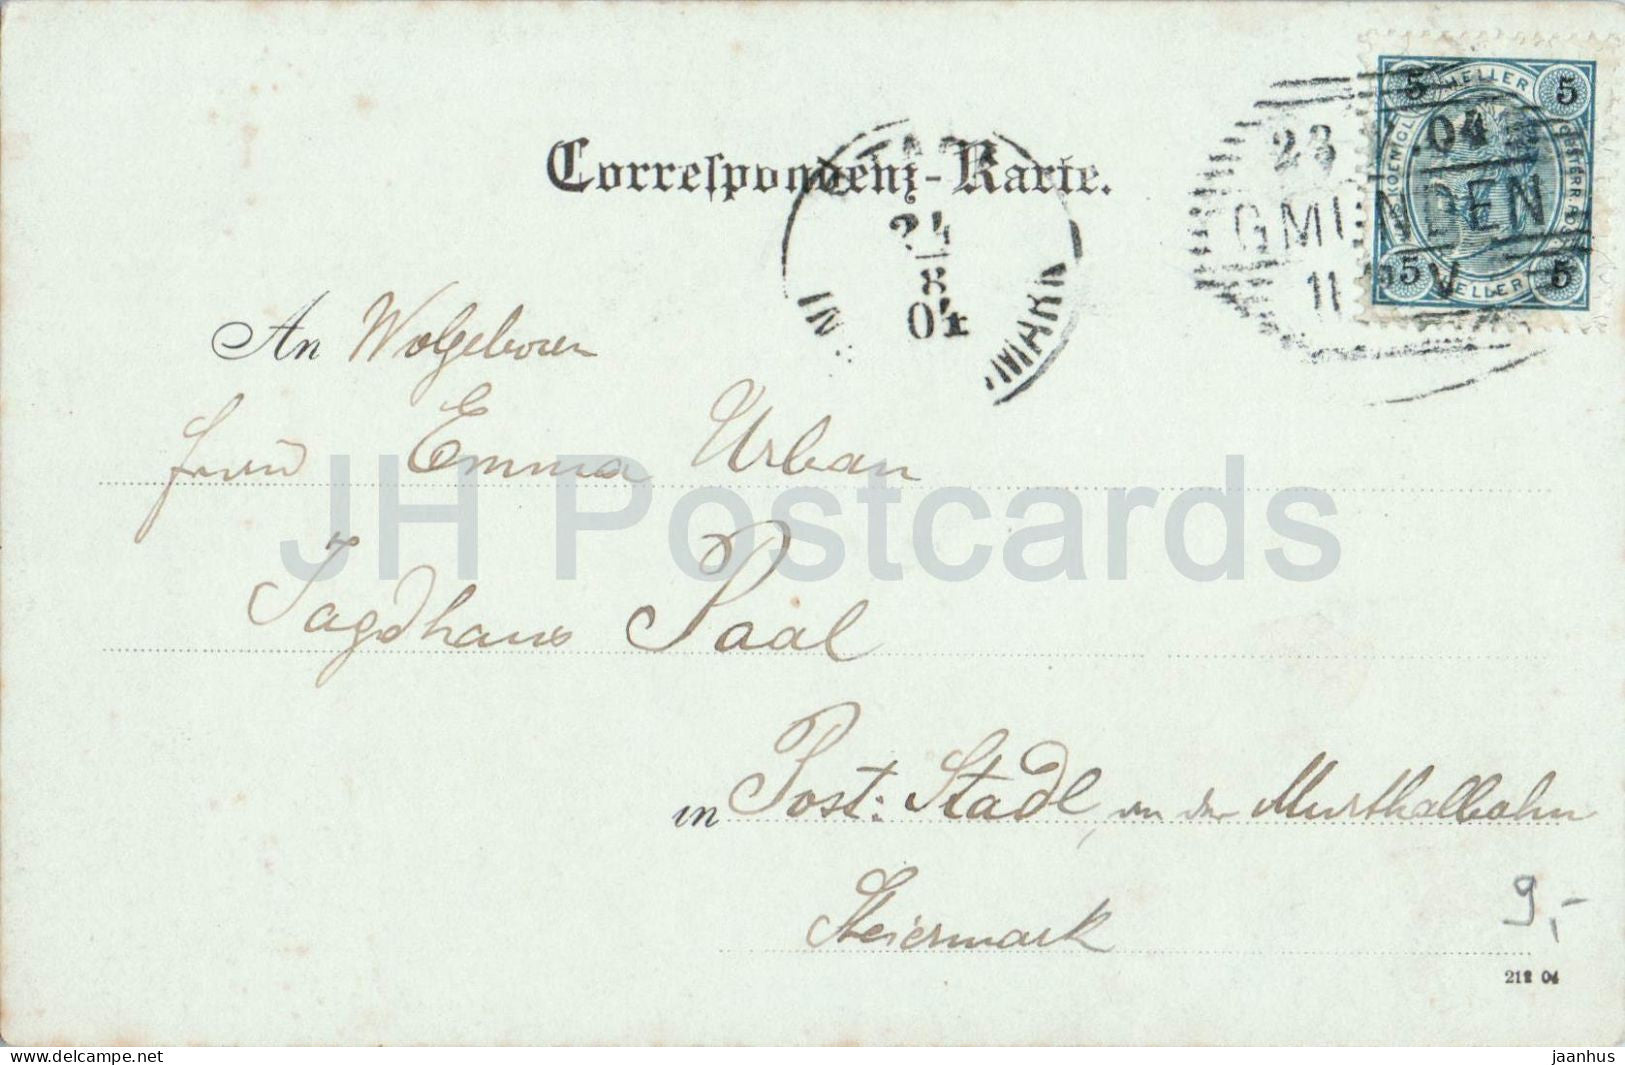 Correspondenz-Karte.
5 HELLER 5
23 04
GMUNDEN
11 V
5 HELLER 5
24
8
04
An Wolgeboren
Frau Emma Urban
Jagdhaus Paal
in Post: Stadl, an der Murthalbahn
Steiermark
9,-
212 04
JH Postcards
www.delcampe.net
jaanhus